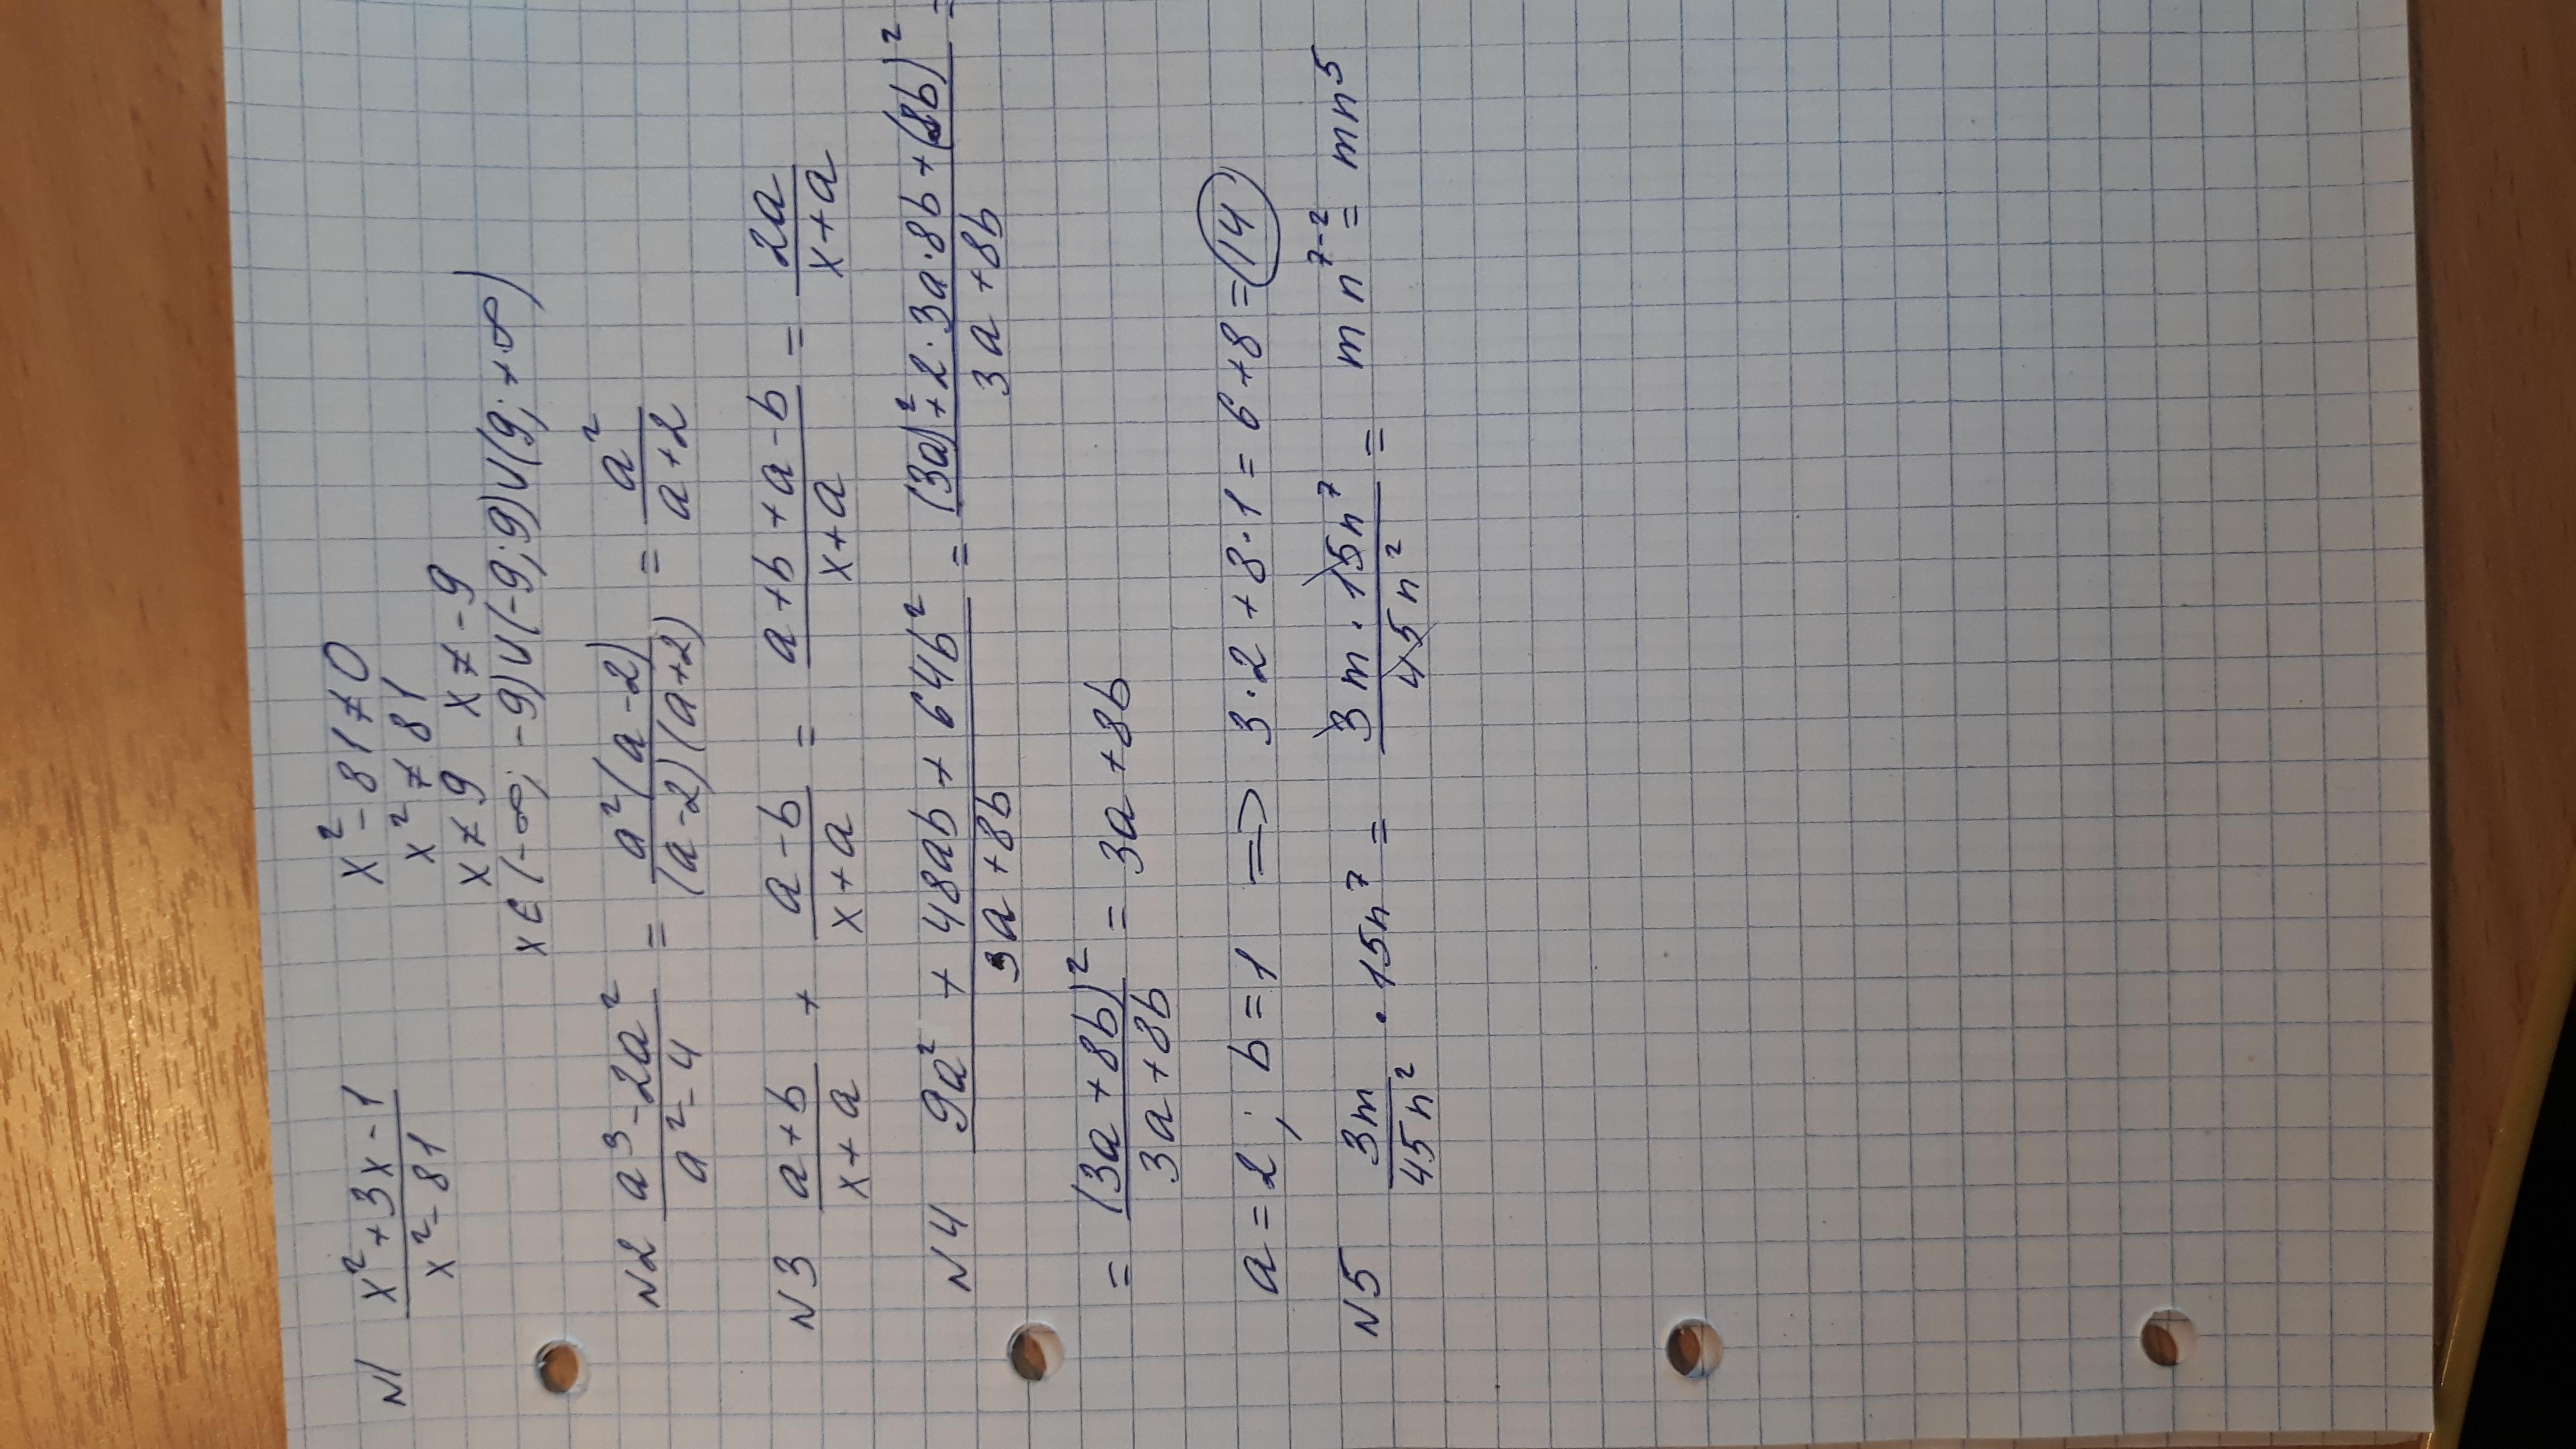 N1 (x² + 3x - 1)/(x² - 81) x² - 81 ≠ 0
x² ≠ 81
x ≠ 9 x ≠ -9
x ∈ (-∞; -9) ∪ (-9; 9) ∪ (9; +∞)
N2 (a³ - 2a²)/(a² - 4) = (a²(a - 2))/((a - 2)(a + 2)) = a²/(a + 2)
N3 (a + b)/(x + a) + (a - b)/(x + a) = (a + b + a - b)/(x + a) = 2a/(x + a)
N4 (9a² + 48ab + 64b²)/(3a + 8b) = ((3a)² + 2 · 3a · 8b + (8b)²)/(3a + 8b) =
= (3a + 8b)²/(3a + 8b) = 3a + 8b
a = 2; b = 1 => 3 · 2 + 8 · 1 = 6 + 8 = 14
N5 3m/45n² · 15n⁷ = (3m · 15n⁷)/(45n²) = m n⁷⁻² = mn⁵